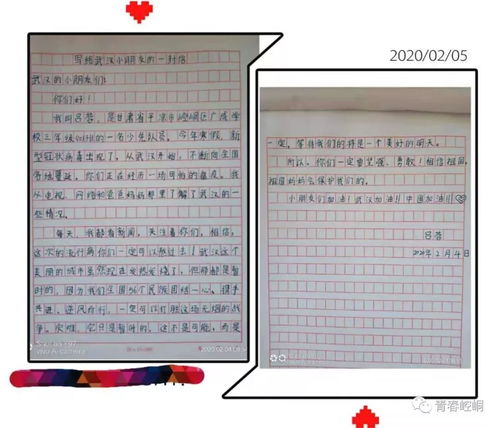 2020/02/05
写给武汉小朋友的一封信
武汉的小朋友们:
你们好!
我叫吕蓉,是甘肃省平凉市崆峒区广成学
校三年级的一名少先队员,今年寒假,新
型冠状病毒出现了,从武汉开始,不断向全国
各地蔓延,你们正在经历一场可怕的瘟疫。我
从电视、网络和爸爸妈妈那里了解了武汉的一
些情况。
每天,我都看新闻,关注着你们,相信,
这次的流行病你们一定可以熬过去!武汉这个
美丽的城市虽然现在发热发烧了,但那都是暂
时的,因为我们全国56个民族团结一心、携手
共进、逆风而行,一定可以打胜这场无烟的战
争。灾难,它只是暂时的,这不是可能,而是
一定,等待我们的将是一个美好的明天。
所以,你们一定要坚强、勇敢!相信祖国,
祖国妈妈会保护我们的。
小朋友们加油!武汉加油!!中国加油!!!
吕蓉
2020年2月4日
vivo AI camera
青春崆峒